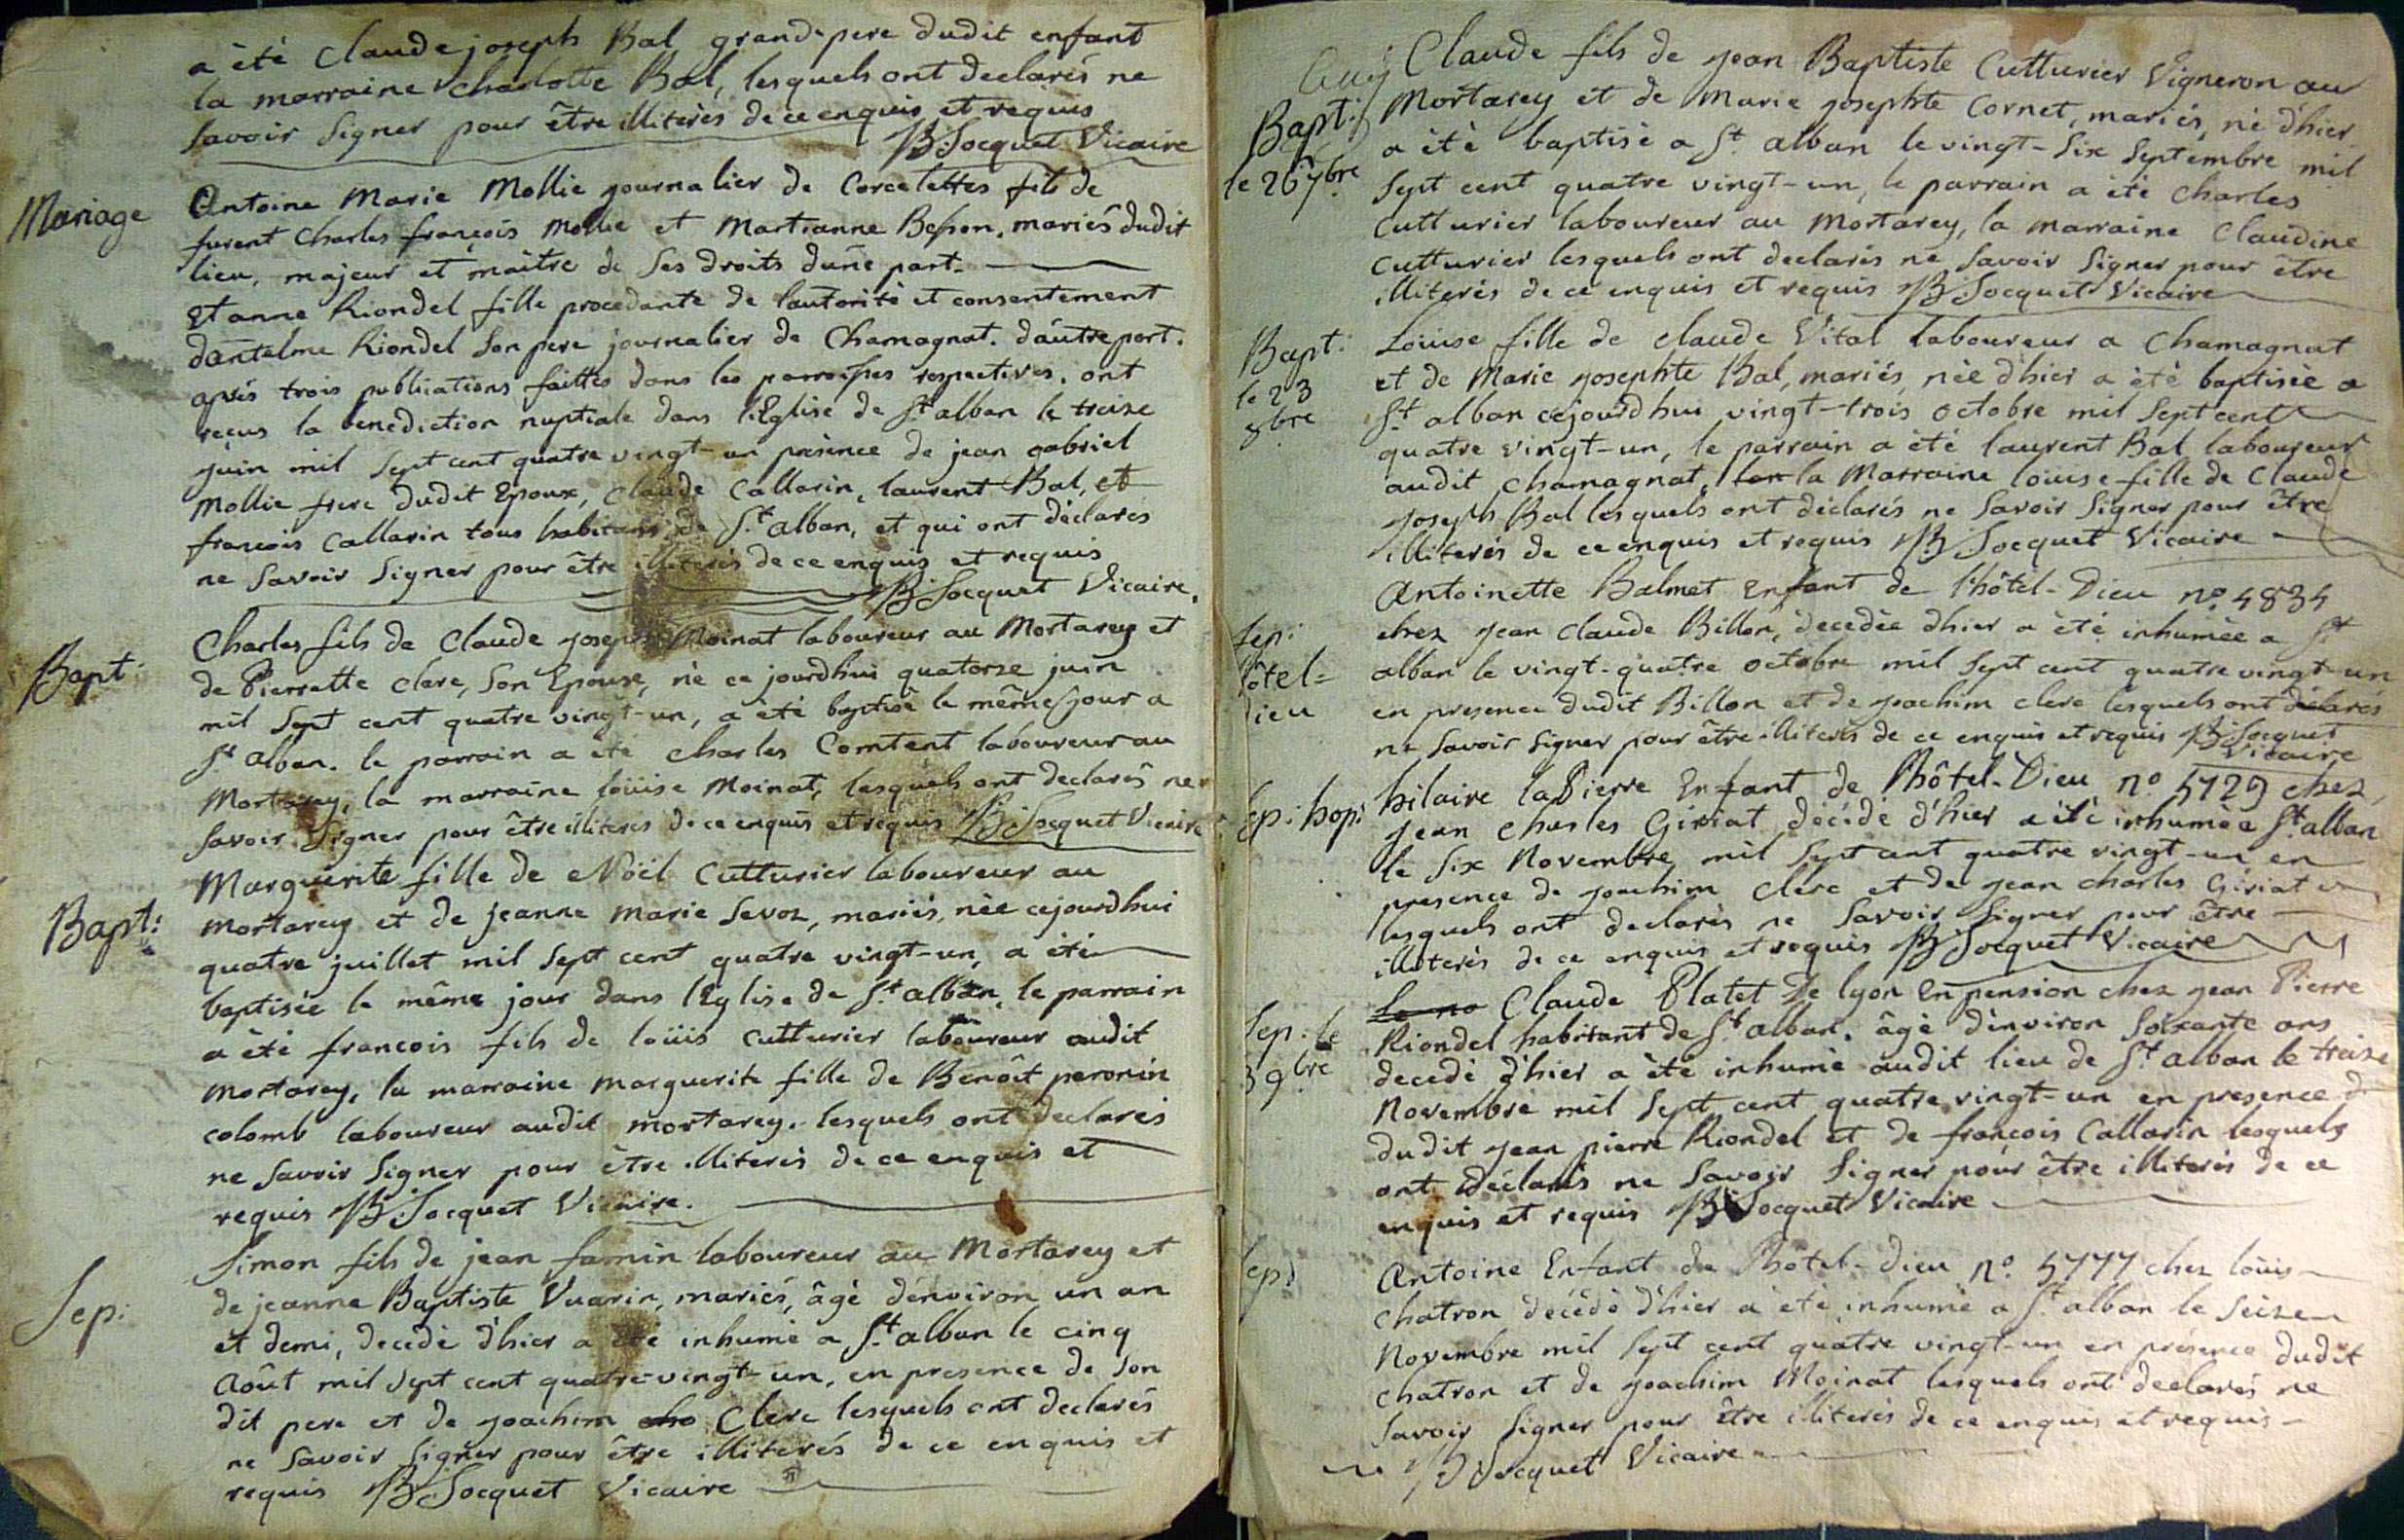 a été Claude joseph Bal grand-pere dudit enfant
la marraine Charlotte Bal, lesquels ont declarés ne
savoir signer pour être illiterés de ce enquis et requis
B Socquet Vicaire
Mariage
Antoine Marie Mollie journalier de Corcelettes fils de
furent Charles françois Mollie et Martianne Besson, mariés dudit
lieu, majeur et maître de ses droits d'une part.
Et anne Riondel fille procedante de l'autorité et consentement
d'antelme Riondel son pere journalier de Chamagnat. d'autre part.
aprés trois publications faittes dans les parroisses respectives. ont
reçus la benediction nuptiale dans l'Eglise de St alban le treize
juin mil sept cent quatre vingt-un présence de jean gabriel
Mollie frere dudit Epoux, Claude Callarin, laurent Bal, et
françois Callarin tous habitans de St alban, et qui ont déclarés
ne savoir signer pour être illiterés de ce enquis et requis
B Socquet Vicaire.
Bapt:
Charles fils de Claude joseph Moinat laboureur au Mortarey et
de Pierrette Clerc, son Epouse, né ce jourdhui quatorze juin
mil sept cent quatre vingt-un, a été baptisé le même jour a
St alban. le parrain a été Charles Comtent laboureur au
Mortarey, la marraine loüise Moinat, lesquels ont declarés ne
savoir signer pour être illiterés de ce enquis et requis B Socquet Vicaire
Bapt:
Marguerite fille de Nöël Cutturier laboureur au
Mortarey et de jeanne Marie Sevoz, mariés, née cejourdhui
quatre juillet mil sept cent quatre vingt-un, a été
baptisée le même jour dans l'Eglise de St alban, le parrain
a été françois fils de loüis Cutturier laboureur audit
Mortarey, la marraine marguerite fille de Benôit peronin
colomb laboureur audit mortarey. lesquels ont declarés
ne savoir signer pour être illiterés de ce enquis et
requis B Socquet Vicaire.
Sep:
Simon fils de jean famin laboureur au Mortarey et
de jeanne Baptiste Vuarin, mariés, âgé d'environ un an
et demi, decedé d'hier a été inhumé a St alban le cinq
Août mil sept cent quatre-vingt-un, en presence de son
dit pere et de joachim Clerc lesquels ont declarés
ne savoir signer pour être illiterés de ce enquis et
requis B Socquet Vicaire
Bapt:
le 26 7bre
Claude fils de jean Baptiste Cutturier Vigneron au
Mortarey et de Marie josephte Cornet, mariés, né d'hier
a été baptisé a St alban le vingt-six Septembre mil
sept cent quatre vingt-un, le parrain a été Charles
Cutturier laboureur au Mortarey, la marraine Claudine
Cutturier lesquels ont declarés ne savoir signer pour être
illiterés de ce enquis et requis B Socquet Vicaire
Bapt:
le 23
8bre
Loüise fille de Claude Vital laboureur a Chamagnat
et de Marie josephte Bal, mariés, née d'hier a été baptisée a
St alban cejourd'hui vingt-trois octobre mil sept cent
quatre vingt-un, le parrain a été laurent Bal laboureur
audit Chamagnat, la Marraine loüise fille de Claude
joseph Bal lesquels ont déclarés ne savoir signer pour être
illiterés de ce enquis et requis B Socquet Vicaire
Sep:
hôtel-
Dieu
Antoinette Balmet Enfant de l'hôtel-Dieu no 4834
chez jean Claude Billon, decedée d'hier a été inhumée a St
alban le vingt-quatre octobre mil sept cent quatre vingt-un
en presence dudit Billon et de joachim clerc lesquels ont déclarés
ne savoir signer pour être illiterés de ce enquis et requis B Socquet
Vicaire
Sep: hop:
hilaire la Pierre Enfant de l'hôtel-Dieu no 5729 chez
jean Charles Giriat, décédé d'hier a été inhumé a St alban
le six Novembre mil sept cent quatre vingt-un en
presence de joachim Clerc et de jean charles Giriat
lesquels ont declarés ne savoir signer pour être
illiterés de ce enquis et requis B Socquet Vicaire
Sep: le
13 9bre
Claude Platet De lyon En pension chez jean Pierre
Riondel habitant de St alban, âgé d'environ soixante ans
decedé d'hier a été inhumé audit lieu de St alban le treize
Novembre mil sept cent quatre vingt-un en presence
dudit jean pierre Riondel et de françois Callarin lesquels
ont déclarés ne savoir signer pour être illiterés de ce
enquis et requis B Socquet Vicaire
Sep:
Antoine Enfant de l'hôtel-Dieu no 5777 chez loüis
chatron décédé d'hier a été inhumé a St alban le seize
Novembre mil sept cent quatre vingt-un en présence dudit
chatron et de joachim Moinat lesquels ont declarés ne
savoir signer pour être illiterés de ce enquis et requis
B Socquet Vicaire